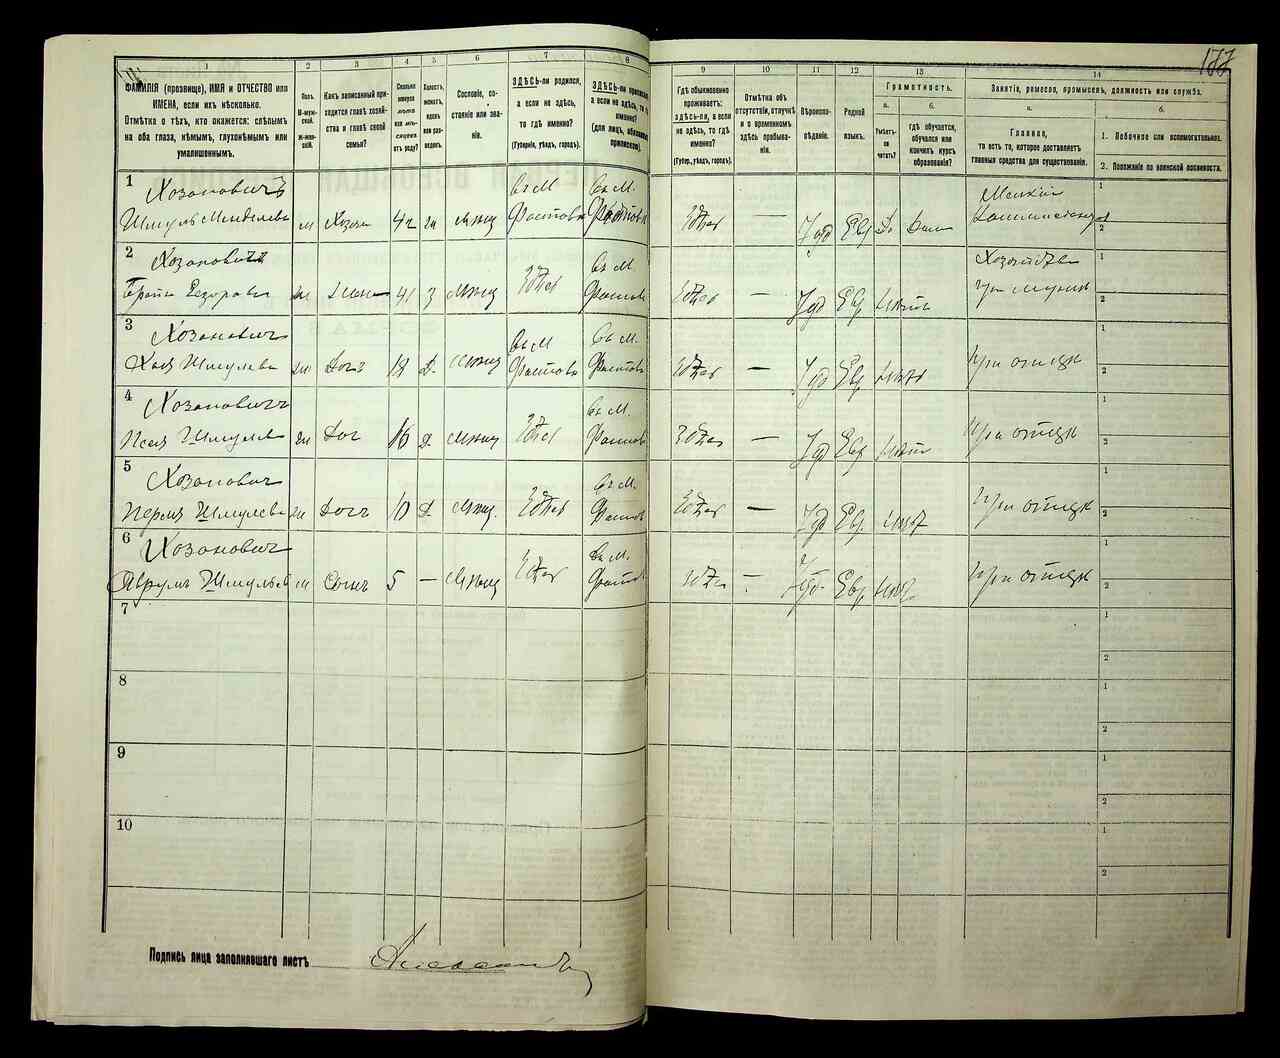 177
1
2
3
4
5
6
7
8
9
10
11
12
13
14
ФАМИЛІЯ (прозвище), ИМЯ и ОТЧЕСТВО или
ИМЕНА, если ихъ нѣсколько.
Отмѣтка о тѣхъ, кто окажется: слѣпымъ
на оба глаза, нѣмымъ, глухонѣмымъ или
умалишеннымъ.
Полъ.
М-муж-
ской.
Ж-жен-
скій.
Какъ записанный при-
ходится главѣ хозяй-
ства и главѣ своей
семьи?
Сколько
минуло
лѣтъ
или
мѣся-
цевъ
отъ роду?
Холостъ,
женатъ,
вдовъ
или раз-
веденъ.
Сословіе, со-
стояніе или зва-
ніе.
ЗДѢСЬ-ли родился,
а если не здѣсь,
то гдѣ именно?
(Губернія, уѣздъ, городъ).
ЗДѢСЬ-ли приписанъ,
а если не здѣсь, то гдѣ
именно?
(для лицъ, обязанныхъ
припиской).
Гдѣ обыкновенно
проживаетъ:
здѣсь-ли, а если
не здѣсь, то гдѣ
именно?
(Губер.,уѣздъ, городъ).
Отмѣтка объ
отсутствіи, отлучкѣ
и о временномъ
здѣсь пребыва-
ніи.
Вѣроиспо-
вѣданіе.
Родной
языкъ.
Грамотность.
а.
Умѣетъ-
ли
читать?
б.
гдѣ обучается,
обучался или
кончилъ курсъ
образованія?
Занятіе, ремесло, промыселъ, должность или служба.
а.
Главное,
то есть то, которое доставляетъ
главныя средства для существованія.
б.
1. Побочное или вспомогательное.
2. Положеніе по воинской повинности.
1
Хозановичъ
Шмуль Менделевъ
м
Хозяин
42
ж
мѣщ
Въ М.
Фастовъ
Въ М.
Фастовъ
Здѣсь
—
Іуд
Евр
Да
Мелкій
1
2
2
Хозановичъ
ж
Жена
41
З
мѣщ
Здѣсь
Въ М.
Фастовъ
Здѣсь
—
Іуд
Евр
При мужѣ
1
2
3
Хозановичъ
Хая Шмулева
ж
Дочь
18
Д.
мѣщ
Въ М.
Фастовъ
Въ М.
Фастовъ
Здѣсь
—
Іуд
Евр
При отцѣ
1
2
4
Хозановичъ
Песя Шмулев
ж
Доч
16
Д.
мѣщ
Здѣсь
Въ М.
Фастов
Здѣсь
—
Іуд
Евр
При отцѣ
1
2
5
Хозанович
Перля Шмулева
ж
Дочь
10
Д.
мѣщ.
Здѣсь
Въ М.
Фастов
Здѣсь
—
Іуд
Евр.
При отцѣ
1
2
6
Хозанович
Аврумъ Шмулевъ
м
Сынъ
5
—
мѣщ
Здѣсь
Въ М.
Фастов
Здѣсь
—
Іуд.
Евр.
При отцѣ
1
2
7
1
2
8
1
2
9
1
2
10
1
2
Подпись лица заполнявшаго листъ